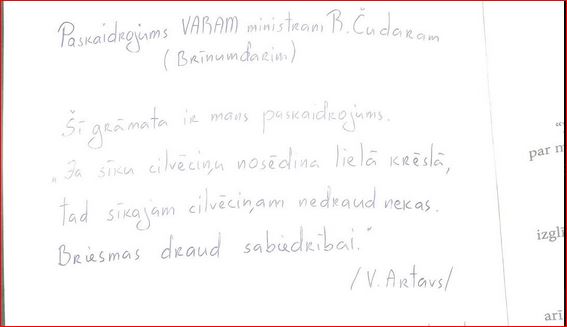 Paskaidrojums VARAM ministram R. Čudaram
(Brīnumdarim)
Šī grāmata ir mans paskaidrojums.
„Ja sīku cilvēciņu nosēdina lielā krēslā,
tad sīkajam cilvēciņam nedraud nekas.
Briesmas draud sabiedrībai."
/V. Artavs/
par
izglī
arī